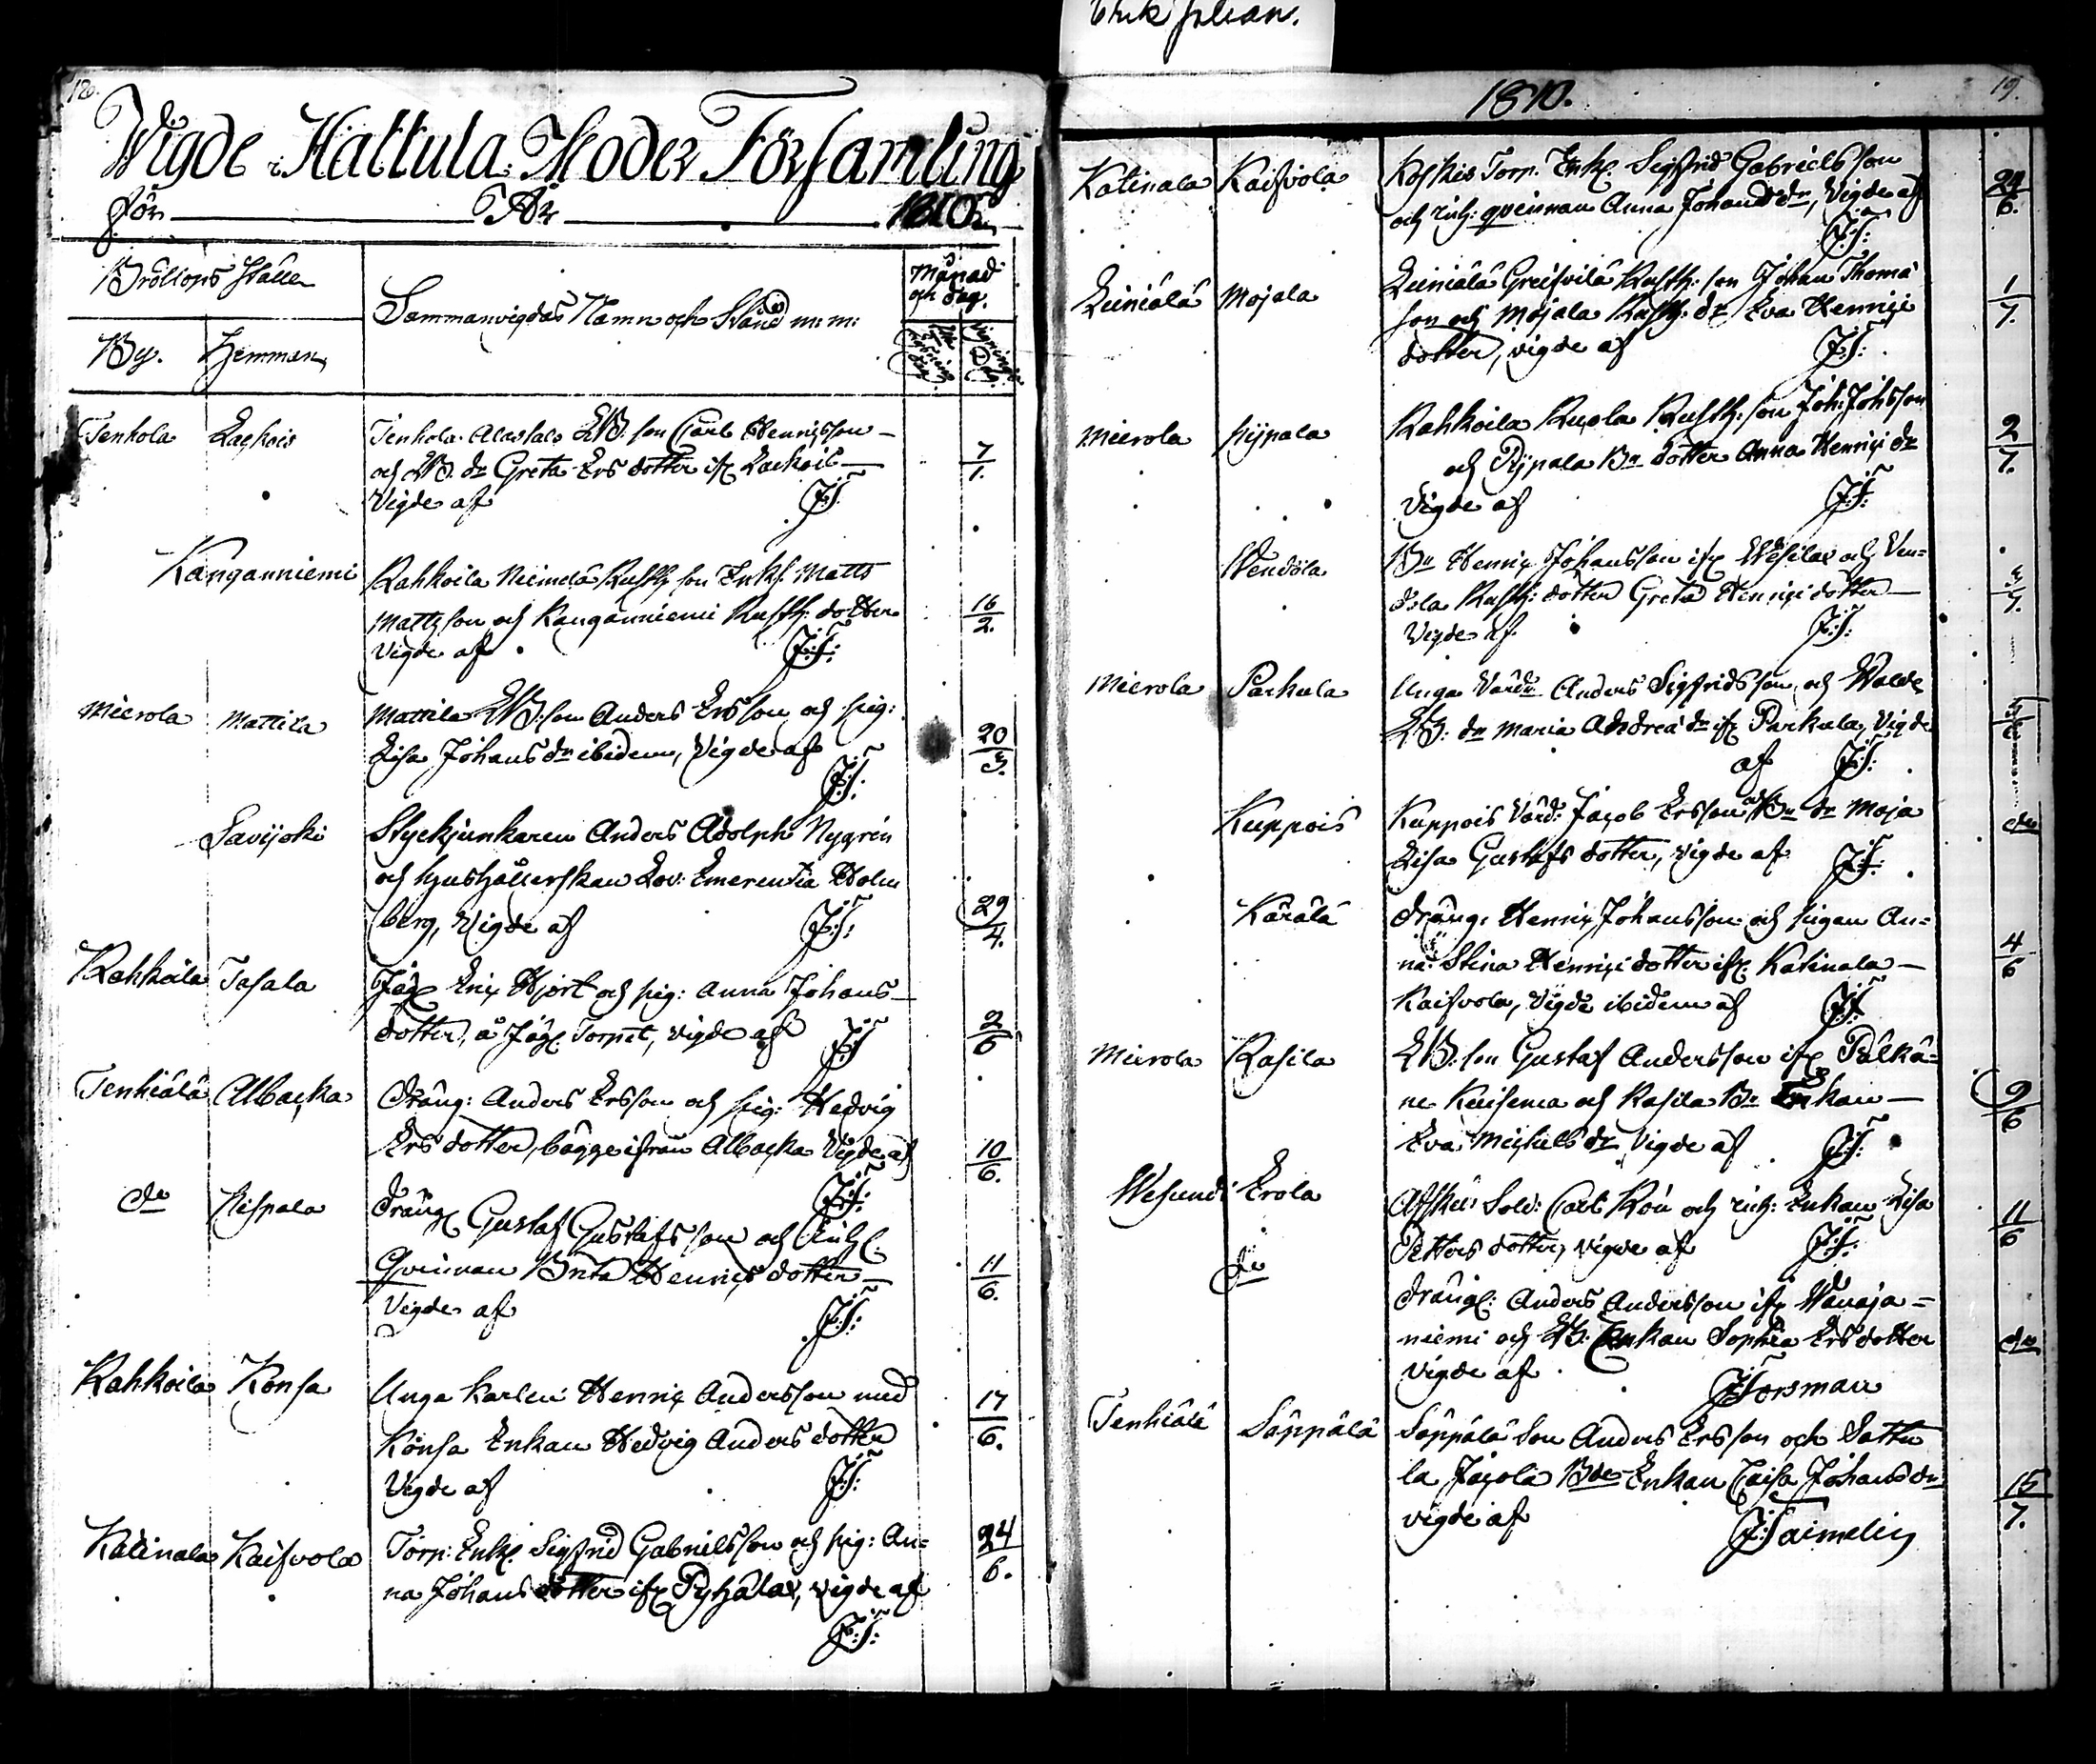 Erik Johan.
18.
Wigde i Hattula Moder Församling
för År 1810.
Bröllops ställe
Månad
och dag.
Sammanvigdas Namn och Stånd m: m:
By. Hemman
Tenhola Lackois Tenhola Alastalo LB. son Carl Henricsson
och LB. dr Greta Ers dotter ifr. Lackois 7/1.
Vigde af J:F:
Kanganniemi Rahkoila Niemelä Rusth. son Enkl. Matts
Mattsson och Kanganniemi Rusth: dotter 16/2.
Vigde af J:F:
Mierola Mattila Mattila LB: son Anders Ersson och pig:
Lisa Johans dr ibidem, Vigde af 20/3.
J:F:
Savijoki Styckjunkaren Anders Adolph Nygrén
och hushållerskan Lov: Emerentia Holm
berg, Vigde af J:F: 29/4.
Rahkoila Tasala Jäg. Eric Hjort och pig: Anna Johans
dotter, å Jäg. Torpet, vigde af J:F 2/6
Tenhiälä Albacka Dräng: Anders Ersson och pig: Hedvig
Ers dotter, bägge ifrån Albacka Vigde af 10/6.
J:F:
do Rispala Dräng Gustaf Gustafsson och
Qvinnan Brita Henrics dotter 11/6.
Vigde af J:F:
Rahkoila Konsa Unga karlen Henric Andersson med 17/6.
Konsa Enkan Hedvig Anders dotter
Vigde af J:F:
Katinala Kaisvola Torp: Enkl. Sigfrid Gabrielsson och pig: An= 24/6.
na Johans dotter ifr. Pyhälax, vigde af
J:F:
1810.
19.
Katinala Kaisvola Koskis Torp. Enkl. Sigfrid Gabrielsson 24/6.
och qvinnan Anna Johans dr, Vigde af
J:F:
Leiniälä Mojala Leiniälä Greifvilä Rusth: son Johan Thomæ 1/7.
son och Mojala Rusth. dr Eva Henrici
dotter, vigde af J:F:
Mierola Pijpala Rahkoila Ruola Rusth: son Joh: Johsson 2/7.
och Pijpala Bn dotter Anna Henrici dr
Vigde af J:F:
Wendola Bn Henric Johansson ifr. och Ven=
dola Rusth: dotter Greta Henrici dotter
Vigde af J:F:
Mierola Parkula Unga Anders Sigfridsson, och
LB: dr Maria Andreæ dr ifr. Parkula, Vigde
af J:F:
Kuppois Kuppois Värd: Jacob Ersson och Bn dr Maja do
Lisa Gustafs dotter, vigde af J:F:
Kärälä Dräng. Henric Johansson och pigan An=
na Stina Henrici dotter ifr. Katinala 4/6
Kaisvola, Vigde ibidem af J:F:
Mierola Rasila LB: son Gustaf Andersson ifr. Pälkä=
ne och Rasila Bn Enkan 9/6
Eva Michels dr Vigde af J:F:
Wesunda Erola Afsked: Sold: Carl och Enkan Lisa 11/6
Petters dotter, vigde af J:F:
do Dräng: Anders Andersson ifr. Wanaja=
niemi och Enkan Sophia Ers dotter do
vigde af J Forsman
Tenhiälä Säppälä Säppälä Son Anders Ersson och Sattu
la Jacola Bde Enkan Caisa Johans dr 15/7.
vigde af J: Faimelin